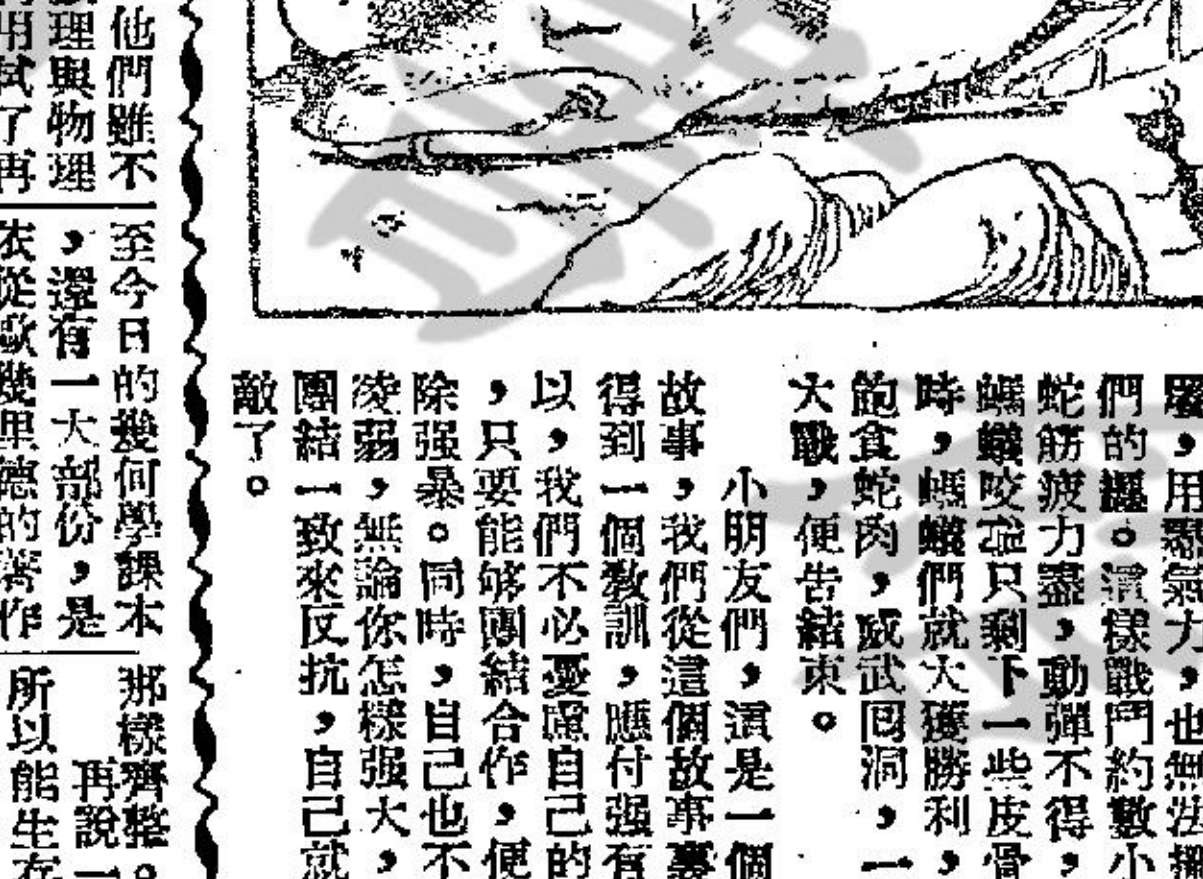 用盡氣力，也無法擺
們的
蛇筋疲力盡，動彈不得，
螞蟻咬齧只剩下一些皮骨
時，螞蟻們就大獲勝利，
飽食蛇肉，威武囘洞，一
大戰，便告結束。
小朋友們，這是一個
故事，我們從這個故事裏
得到一個教訓，應付强有
以，我們不必憂慮自己的
，只要能够團結合作，便
除强暴。同時，自己也不
凌弱，無論你怎樣强大，
團結一致來反抗，自己就
敵了。
他們雖不
理與物理
用試了再
至今日的幾何學課本
，還有一大部份，是
依從歐幾里德的著作
那樣齊整。
再說一
所以能生存